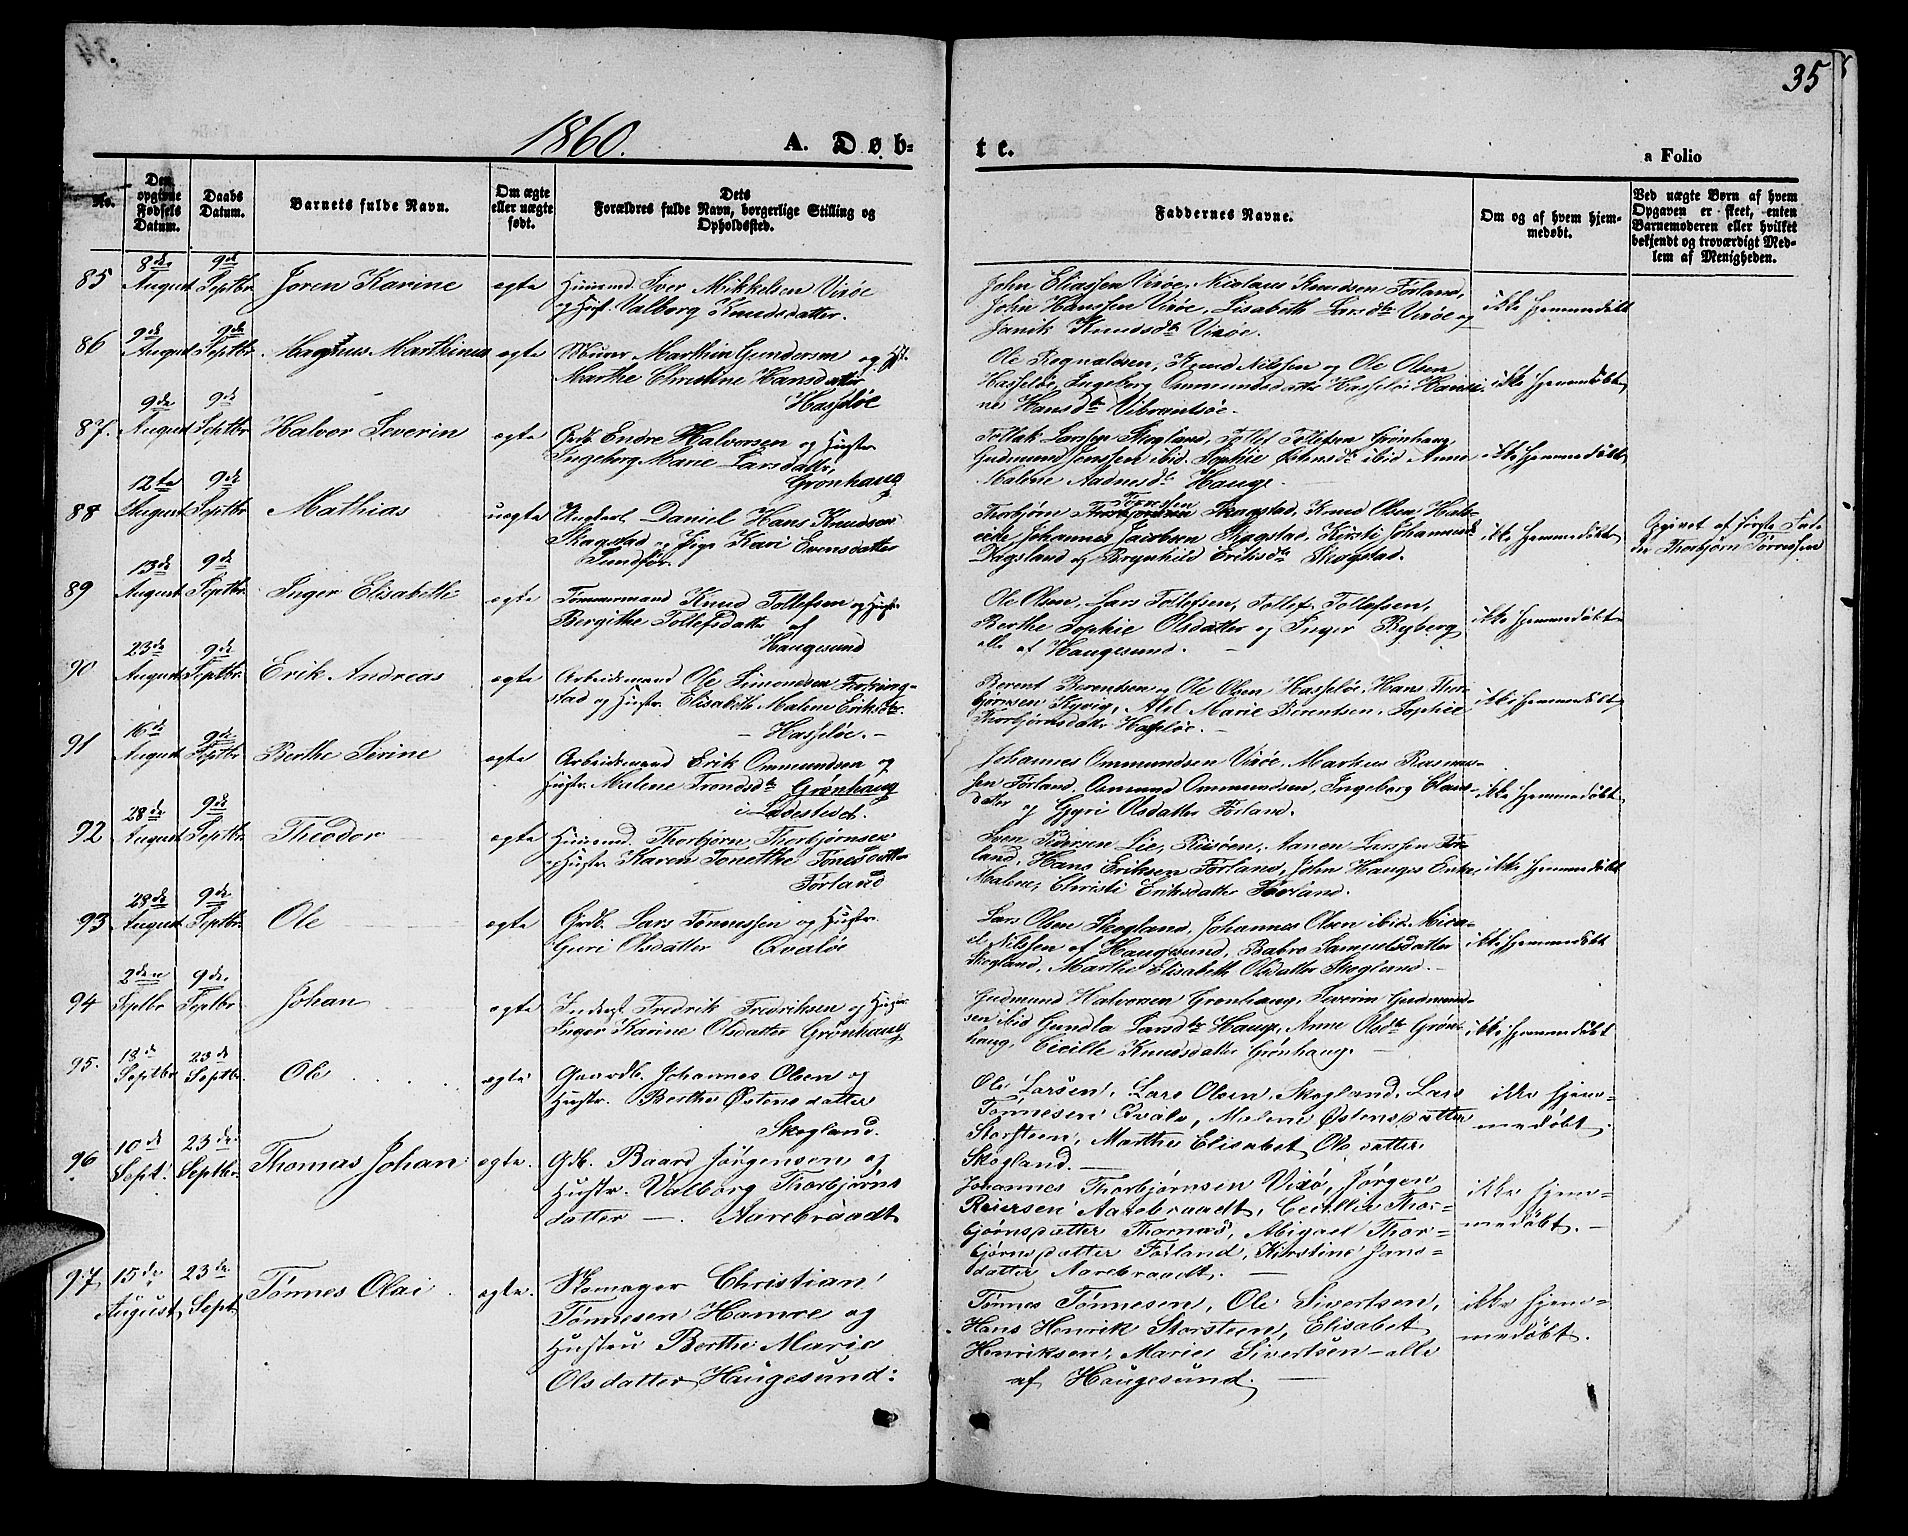 35
1860.
A. Døb-
te.
a Folio
No.
Den opgivne Fødsels Datum.
Daabs Datum.
Barnets fulde Navn.
Om ægte eller uægte født.
Dets Forældres fulde Navn, borgerlige Stilling og Opholdssted.
Faddernes Navne.
Om og af hvem hjemmedøbt.
Ved uægte Børn af hvem Opgaven er skeet, enten Barnemoderen eller hvilket bekjendt og troværdigt Medlem af Menigheden.
85
8de August
9de Septbr
Joren Karine
ægte
Huusmd. Iver Mikkelsen Vixøe
og Hust. Valborg Knudsdatter.
John Eliassen Vixøe, Nicolaus Knudsen Førland,
John Hanssen Vixøe, Lisabeth Larsdtr Vixøe og
Janik Knudsdtr Vixøe.
ikke hjemmedøbt
86
9de August
9de Septbr
Magnus Marthinus
ægte
Murer Marthin Gundersen og Hst.
Marthe Christine Hansdatter
Hasseløe
Ole Regnaldsen, Knud Nilsen og Ole Olsen
Hasseløe, Ingeborg Ommundsdatter Hasseløe Hansi-
ne Hansdtr Vibrandsøe.
ikke hjemmedøbt
87.
9de August
9de Septbr
Halvor Severin
ægte
Grdb. Endre Halvorsen og Hustr.
Ingeborg Marie Larsdattr,
Grønhaug
Tollak Larssen Skogland, Tollef Tollefsen Grønhaug,
Gudmund Jonssen ibid. Sophie Østensdtr ibid Anne
Malene Aadnesdtr Hauge.
ikke hjemmedøbt
88
12te August
9de Septbr
Mathias
uægte
Ungkarl Daniel Hans Knudsen
Skagstad og Pige Kari Evensdatter
Sundfør.
Thorbjørn Tørressen Skagstad, Knud Olsen
Johannes Jacobsen Skagstad, Kirsti Johannesd.
Dagsland og Brynhild Eriksdtr Skogstad.
ikke hjemmedøbt
Opgivet af første Fad-
der Thorbjørn Tørressen
89
13de August
9de Septbr.
Inger Elisabeth
ægte
Tømmermand Knud Tollefsen og Hustr.
Bergithe Tollefsdattr af
Haugesund
Ole Olsen, Lars Tollefsen, Tollef Tollefssen,
Berthe Sophie Olsdatter og Inger Ryberg
alle af Haugesund.
ikke hjemmedøbt
90
23de August
9de Septbr.
Erik Andreas
ægte
Arbeidsmand Ole Simonssen
stad og Hustr. Elisabeth Malene Eriksdtr.
– Hasseløe. –
Berent Berentsen og Ole Olsen Hasseløe, Hans Thor-
bjørnsen Kyvig, Abel Marie Berentsen, Sophie
Thorbjørnsdatr Hasseløe. –
ikke hjemmedøbt
91
16de August
9de Septbr
Berthe Serine
ægte
Arbeidsmand Erik Ommundsen og
Hustr. Malene Trondsdtr Grønhaug
i Ladestedet.
Johannes Ommundsen Vixøe, Markus Rasmus-
sen Førland, Osmund Ommundsen, Ingeborg Claus-
datter og Gyri Olsdatter Førland.
ikke hjemmedøbt
92
28de August
9de Septbr.
Theodor
ægte
Huusmd. Thorbjørn Thorbjørnsen
og Hustr Karen Tonette Tønesdatter
Førland
Sven Lie, Aanen Larssen Før-
land, Hans Eriksen Førland, John Hauges Enke,
Malene, Christi Eriksdatter Førland.
ikke hjemmedøbt
93
28de August
9de Septbr.
Ole
ægte
Grdb. Lars Tønnessen og Hustr.
Guri Olsdatter Qvaløe
Lars Olsen Skogland, Johannes Olsen ibid. Mica-
el Nilssen af Haugesund, Babro Samuelsdatter
Skogland, Marthe Elisabeth Olsdatter Skogland. –
ikke hjemmedøbt
94
2den Septbr
9de Septbr
Johan
ægte
Inderst Fredrik Fredriksen og Hustr.
Inger Karine Olsdatter Grønhaug
Gudmund Halvorsen Grønhaug, Severin Gudmund-
sen ibid Gundla Larsdtr Hauge, Anne Olsdtr Grøn-
haug, Cicille Knudsdatter Grønhaug. –
ikke hjemmedøbt
95.
18de Septbr
23de Septbr.
Ole
ægte
Gaardb. Johannes Olsen og
Hustr. Berthe Østensdatter
Skogland.
Ole Larsen, Lars Olsen, Skogland, Lars
Tønnesen Kvale, Malene Østensdatter
Storsteen, Marthe Elisabet Olsdatter
Skogland. –
ikke hjem-
medøbt.
96
10de Sept.
23de Septbr.
Thomas Johan
ægte.
Gdb. Baard Jørgensen og
Hustr. Valborg Thorbjørns
datter –. Aarebraadt
Johannes Thorbjørnsen Vixø, Jørgen
Reiersen Aarebraadt, Cecillie Thor-
bjørnsdatter Thornæs, Abigael Thor-
bjørnsdatter Førland, Kirstine Jans-
datter Aarebraadt. –
ikke hjem-
medøbt. –
97
15de August
23de Sept.
Tønnes Olai
ægte.
Skomager Christian
Tønnesen Hamre og
Hustru Berthe Marie
Olsdatter Haugesund:
Tønnes Tønnesen, Ole Sivertsen,
Hans Henrik Storsteen, Elisabet
Henriksen, Marie Sivertsen – alle
af Haugesund. –
ikke hjem-
medøbt.